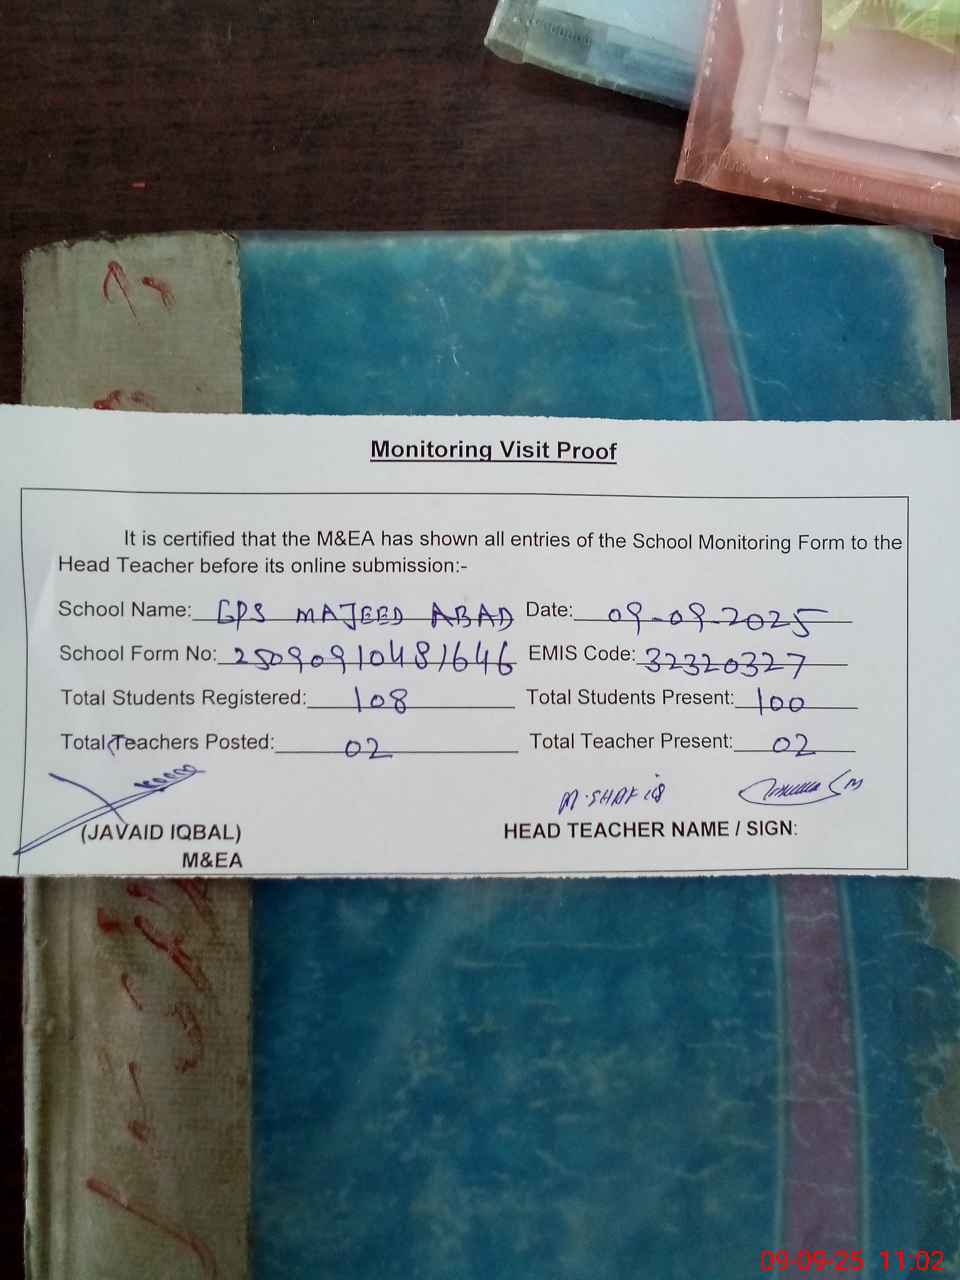 Monitoring Visit Proof
It is certified that the M&EA has shown all entries of the School Monitoring Form to the
Head Teacher before its online submission:-
School Name: GPS MAJEED ABAD Date: 09-09-2025
School Form No: 25090910481646 EMIS Code: 32320327
Total Students Registered: 108 Total Students Present: 100
Total Teachers Posted: 02 Total Teacher Present: 02
M. SHAFIQ
(JAVAID IQBAL) HEAD TEACHER NAME / SIGN:
M&EA
09-09-25 11:02